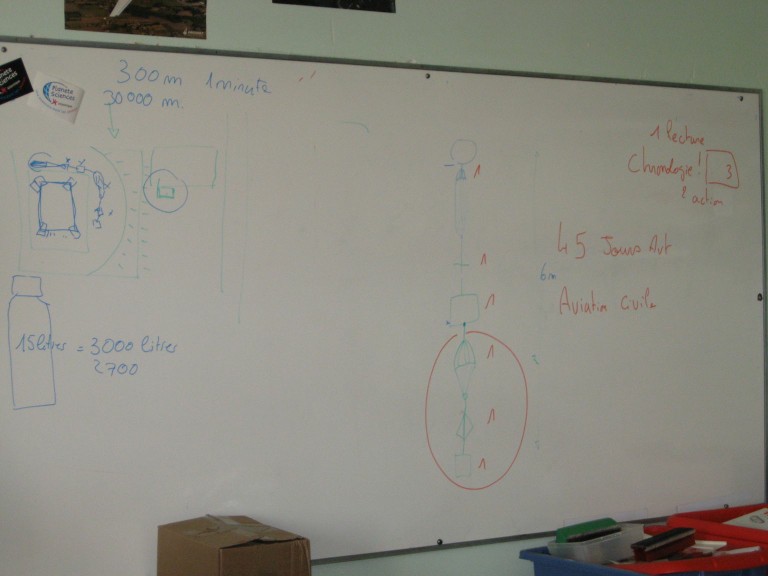 300m 1 minute
30000 m.
Planète
Sciences
15 litres = 3000 litres
2700
1
1
1
1
1
1
6m
1 lecture
Chronologie ! 3
2 action
45 Jours Avt
Aviation Civile